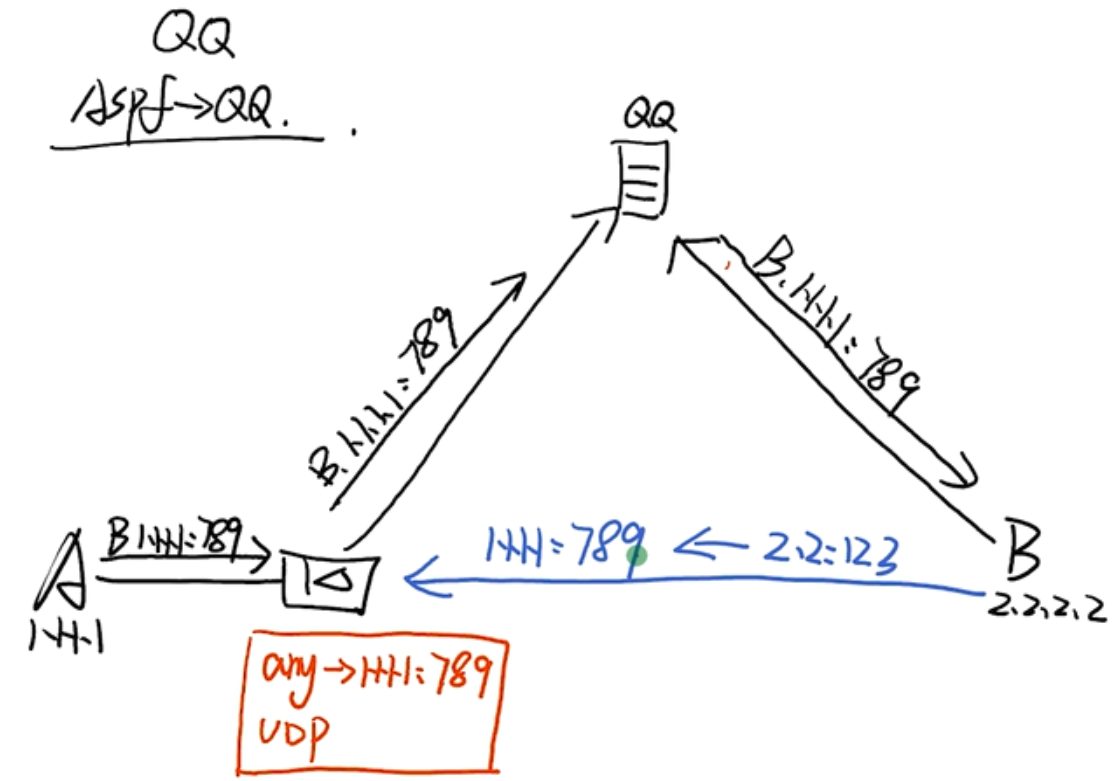 QQ
Aspf→QQ.
QQ
B.1.1.1.1:789
B.1.1.1.1:789
A
B 1.1.1.1:789
1.1.1.1
1.1.1.1:789 ← 2.2:123
B
2.2.2.2
any→1.1.1.1:789
UDP